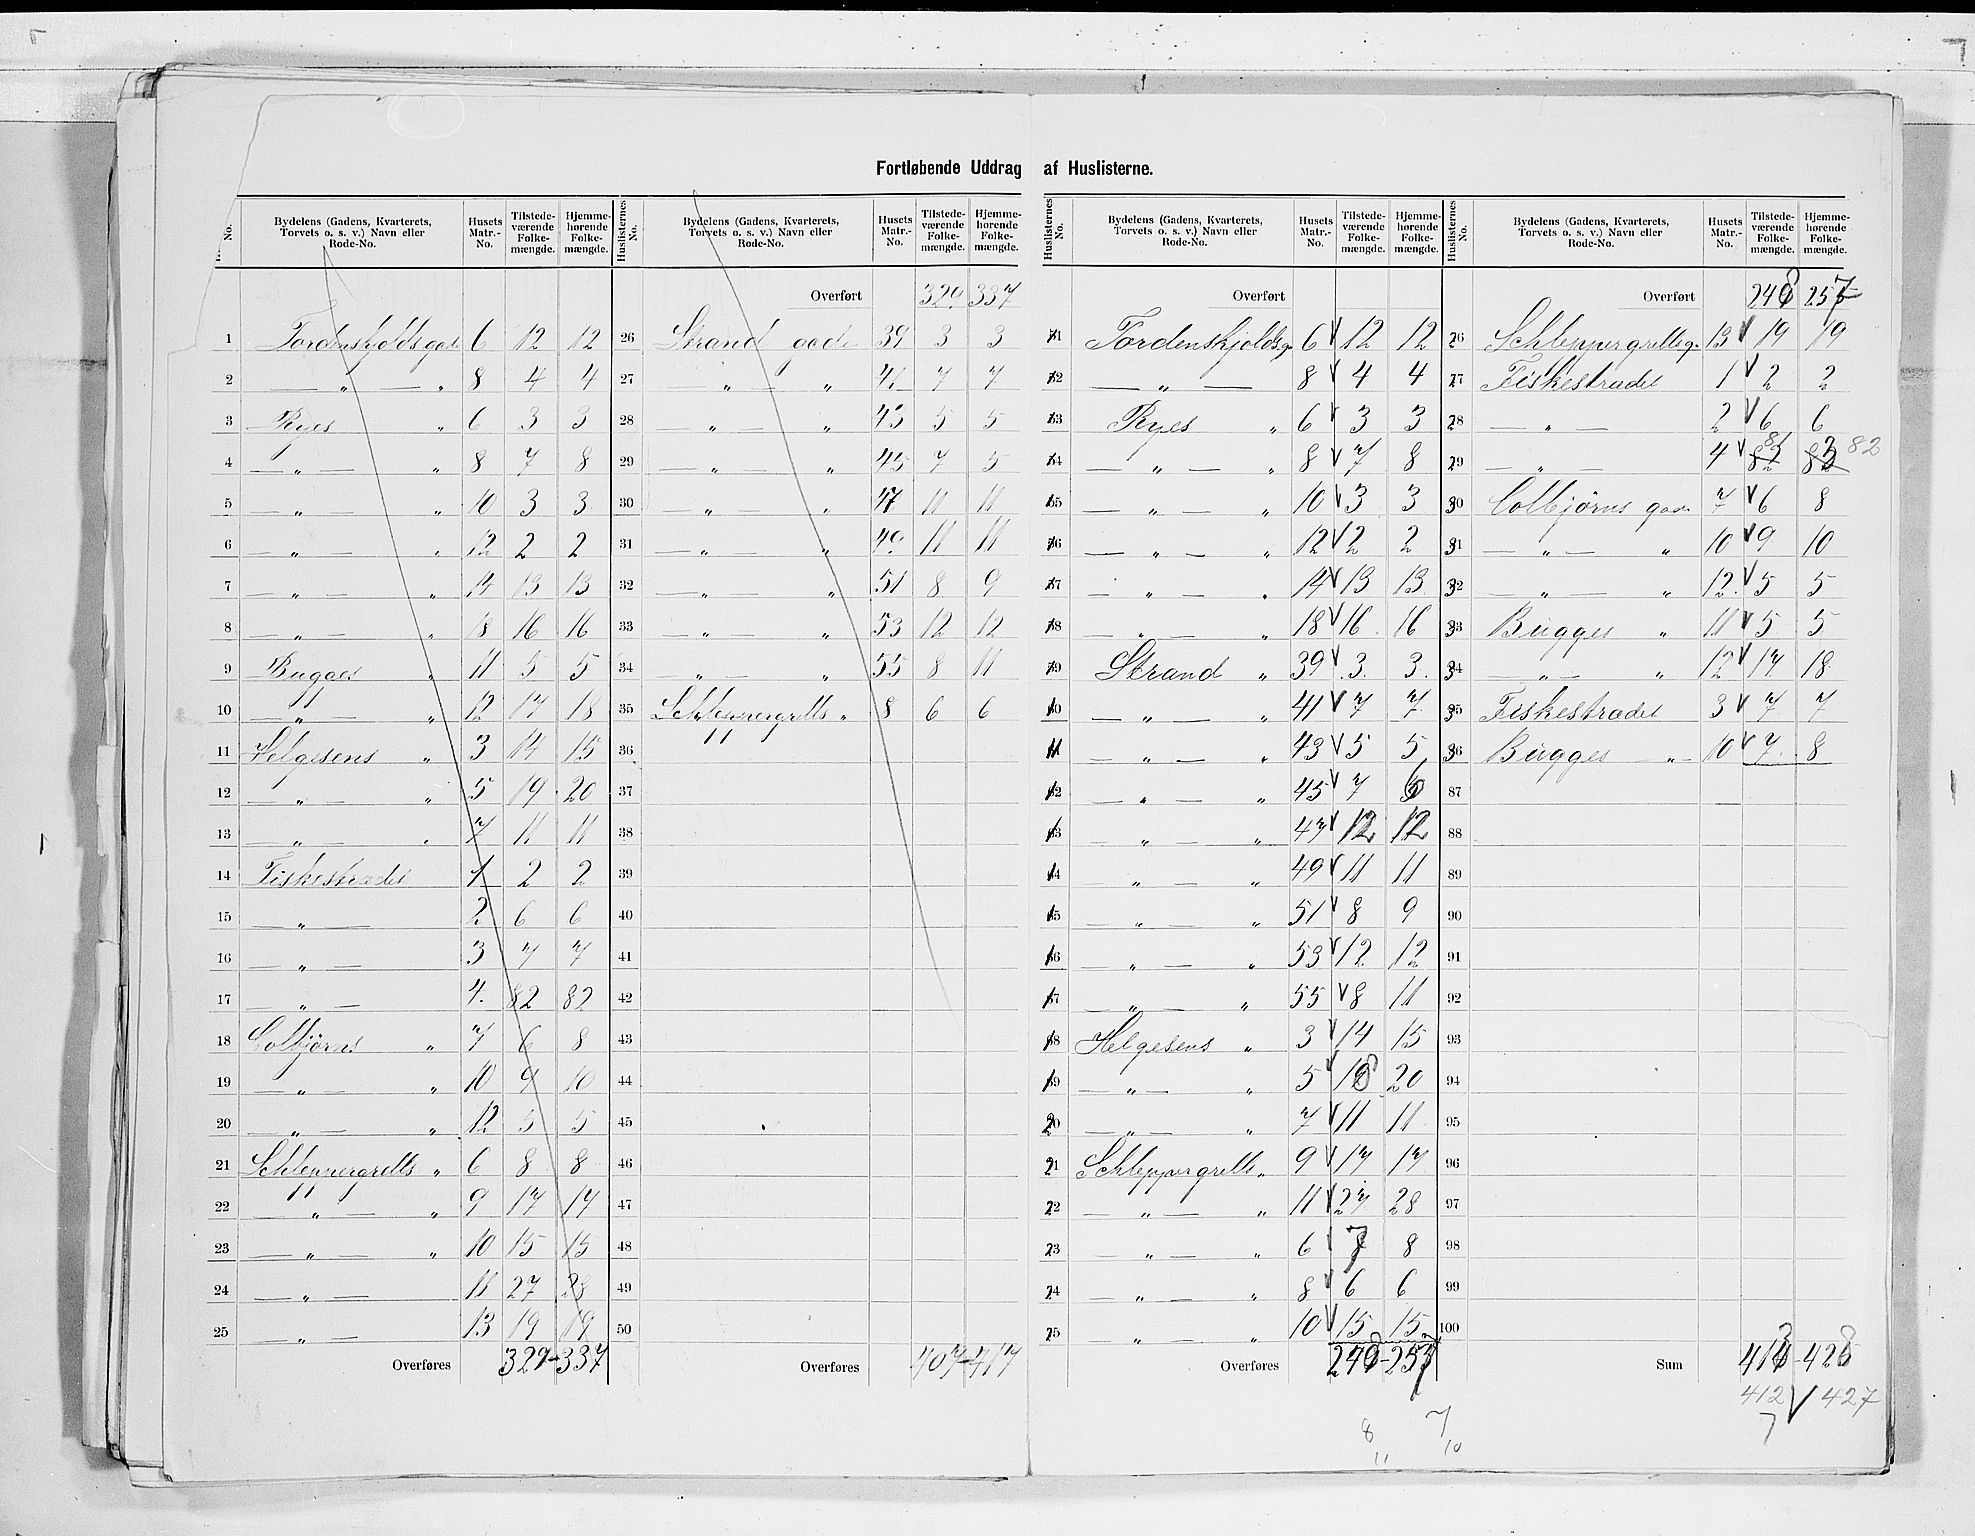 Fortløbende Uddrag af Huslisterne.
No. | Bydelens (Gadens, Kvarterets, Torvets o. s. v.) Navn eller Rode-No. | Husets Matr.-No. | Tilstedeværende Folkemængde. | Hjemmehørende Folkemængde.
1 Tordenskjolds gad. 6 12 12
2 — „ — „ 8 4 4
3 Ryes „ 6 3 3
4 — „ — „ 8 7 8
5 — „ — „ 10 3 3
6 — „ — „ 12 2 2
7 — „ — „ 14 13 13
8 — „ — „ 18 16 16
9 Bugges „ 11 5 5
10 — „ — „ 12 17 18
11 Helgesens „ 3 14 15
12 — „ — „ 5 19 20
13 — „ — „ 7 11 11
14 Fiskestrædet 1 2 2
15 — „ — 2 6 6
16 — „ — 3 7 7
17 — „ — 4 82 82
18 Colbjørns „ 7 6 8
19 — „ — „ 10 9 10
20 — „ — „ 12 5 5
21 Schleppergrells „ 6 8 8
22 — „ — „ 9 17 17
23 — „ — „ 10 15 15
24 — „ — 11 27 28
25 — „ — 13 19 19
Overføres 329 - 337
Huslisternes No. | Bydelens (Gadens, Kvarterets, Torvets o. s. v.) Navn eller Rode-No. | Husets Matr.-No. | Tilstedeværende Folkemængde. | Hjemmehørende Folkemængde.
Overført 329 337
26 Strand gade 39 3 3
27 — „ — „ 41 7 7
28 — „ — „ 43 5 5
29 — „ — „ 45 7 5
30 — „ — „ 47 11 11
31 — „ — „ 49 11 11
32 — „ — „ 51 8 9
33 — „ — „ 53 12 12
34 — „ — „ 55 8 11
35 Schleppergrells „ 8 6 6
36
37
38
39
40
41
42
43
44
45
46
47
48
49
50
Overføres 407 - 417
Huslisternes No. | Bydelens (Gadens, Kvarterets, Torvets o. s. v.) Navn eller Rode-No. | Husets Matr.-No. | Tilstedeværende Folkemængde. | Hjemmehørende Folkemængde.
Overført
1 Tordenskjoldsg. 6 V 12 12
2 — „ — 8 V 4 4
3 Ryes „ 6 V 3 3
4 — „ — „ 8 V 7 8
5 — „ — „ 10 V 3 3
6 — „ — „ 12 V 2 2
7 — „ — „ 14 V 13 13
8 — „ — „ 18 V 16 16
9 Strand „ 39 V 3 3
10 — „ — „ 41 V 7 7
11 — „ — „ 43 V 5 5
12 — „ — „ 45 V 7 6
13 „ — „ 47 V 12 12
14 „ — „ 49 V 11 11
15 „ — „ 51 V 8 9
16 „ — „ 53 V 12 12
17 „ — „ 55 V 8 11
18 Helgesens „ 3 V 14 15
19 — „ — „ 5 V 18 20
20 — „ — „ 7 V 11 11
21 Schleppergrells „ 9 V 17 17
22 — „ — „ 11 V 27 28
23 — „ — „ 6 V 7 8
24 — „ — „ 8 V 6 6
25 — „ — „ 10 V 15 15
Overføres 248 - 257
8 7
11 10
Huslisternes No. | Bydelens (Gadens, Kvarterets, Torvets o. s. v.) Navn eller Rode-No. | Husets Matr.-No. | Tilstedeværende Folkemængde. | Hjemmehørende Folkemængde.
Overført 248 257
26 Schleppergrellsg. 13 V 19 19
27 Fiskestrædet 1 V 2 2
28 — „ — 2 V 6 6
29 — „ — 4 V 81 82
30 Colbjørns gade 7 V 6 8
31 — „ — „ 10 V 9 10
32 — „ — „ 12 V 5 5
33 Bugges „ 11 V 5 5
34 — „ — „ 12 V 17 18
35 Fiskestrædet 3 V 7 7
36 Bugges — „ — 10 V 7 8
87
88
89
90
91
92
93
94
95
96
97
98
99
100
Sum 413 - 428
412 V 427
7